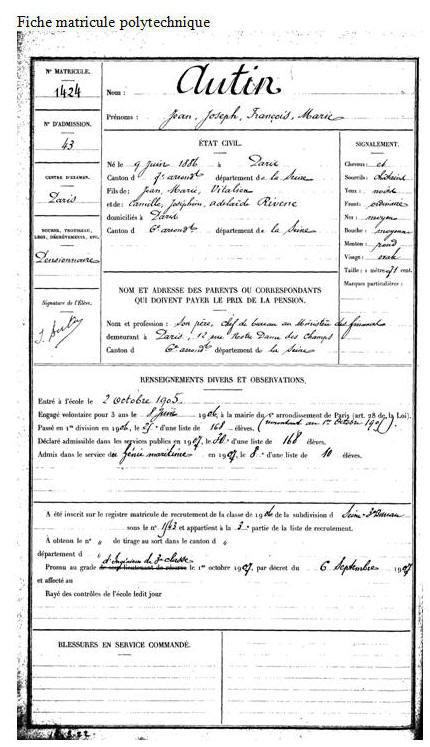 Fiche matricule polytechnique
N° MATRICULE.
1424
N° D'ADMISSION.
43
CENTRE D'EXAMEN.
Paris
BOURSE, TROUSSEAU,
LEGS, DÉGRÈVEMENTS, ETC.
Pensionnaire
Signature de l'Élève.
J. Autin
Nom : Autin
Prénoms : Jean, Joseph, François, Marie
ÉTAT CIVIL.
Né le 9 Juin 1886 à Paris
Canton d 7e arrondt département de la Seine
Fils de : Jean, Marie, Vitalien
et de : Camille, Joséphine, adélaïde
domiciliés à Paris
Canton d 6e arrondt département de la Seine
NOM ET ADRESSE DES PARENTS OU CORRESPONDANTS
QUI DOIVENT PAYER LE PRIX DE LA PENSION.
Nom et profession : Son père, chef de bureau au Ministère des finances
demeurant à Paris, 12 rue Notre Dame des Champs
Canton d 6e arrondt département de la Seine
SIGNALEMENT.
Cheveux : et
Sourcils : châtains
Yeux :
Front : ordinaire
Nez : moyen
Bouche : moyenne
Menton : rond
Visage : ovale
Taille : 1 mètre 71 cent.
Marques particulières :
RENSEIGNEMENTS DIVERS ET OBSERVATIONS.
Entré à l'école le 2 Octobre 1905.
Engagé volontaire pour 3 ans le 8 Juin 1906, à la mairie du arrondissement de Paris (art. 28 de la Loi).
Passé en 1re division en 1906, le 25e d'une liste de 168 élèves. (remontant au 1er Octobre 1905)
Déclaré admissible dans les services publics en 1907, le d'une liste de 168 élèves.
Admis dans le service du Génie maritime en 1907, le 8e d'une liste de 10 élèves.
A été inscrit sur le registre matricule de recrutement de la classe de 1906 de la subdivision d Seine 3e Bureau
sous le n° 1543 et appartient à la 3e partie de la liste de recrutement.
A obtenu le n° „ de tirage au sort dans le canton d „
département d „
d'Ingénieur de 3e classe
Promu au grade de sous-lieutenant de réserve le 1er octobre 1907, par décret du 6 Septembre 1907
et affecté au
Rayé des contrôles de l'école ledit jour
BLESSURES EN SERVICE COMMANDÉ.